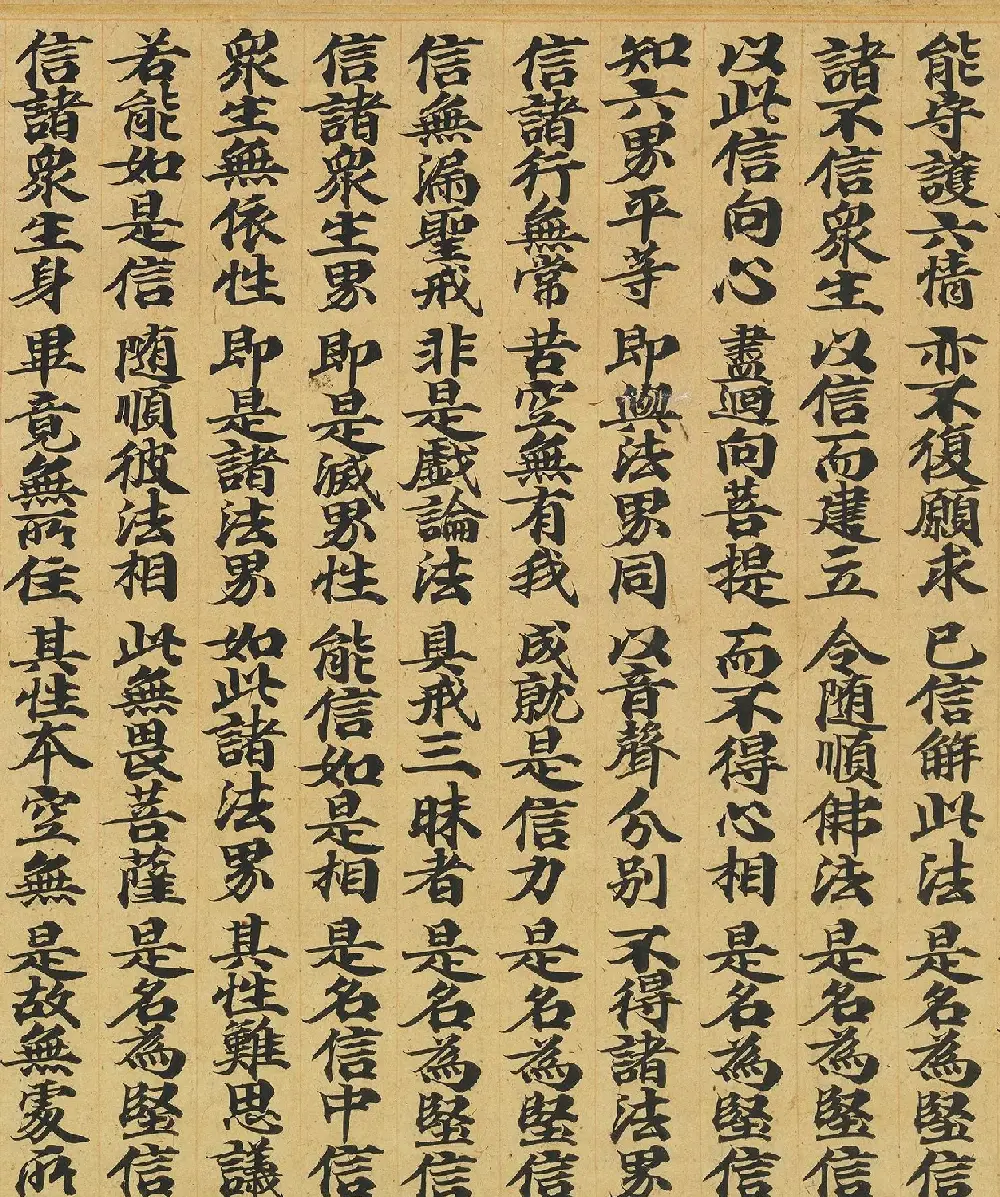 能守護六情 亦不復願求 已信解此法 是名為堅信
諸不信衆生 以信而建立 令随順佛法 是名為堅信
以此信向心 盡迴向菩提 而不得心相 是名為堅信
知六界平等 即與法界同 以音聲分别 不得諸法界
信諸行無常 苦空無有我 成就是信力 是名為堅信
信無漏聖戒 非是戲論法 具戒三昧者 是名為堅信
信諸衆生界 即是滅界性 能信如是相 是名信中信
衆生無依性 即是諸法界 如此諸法界 其性難思議
若能如是信 随順彼法相 此無畏菩薩 是名為堅信
信諸衆生身 畢竟無所住 其性本空無 是故無處所